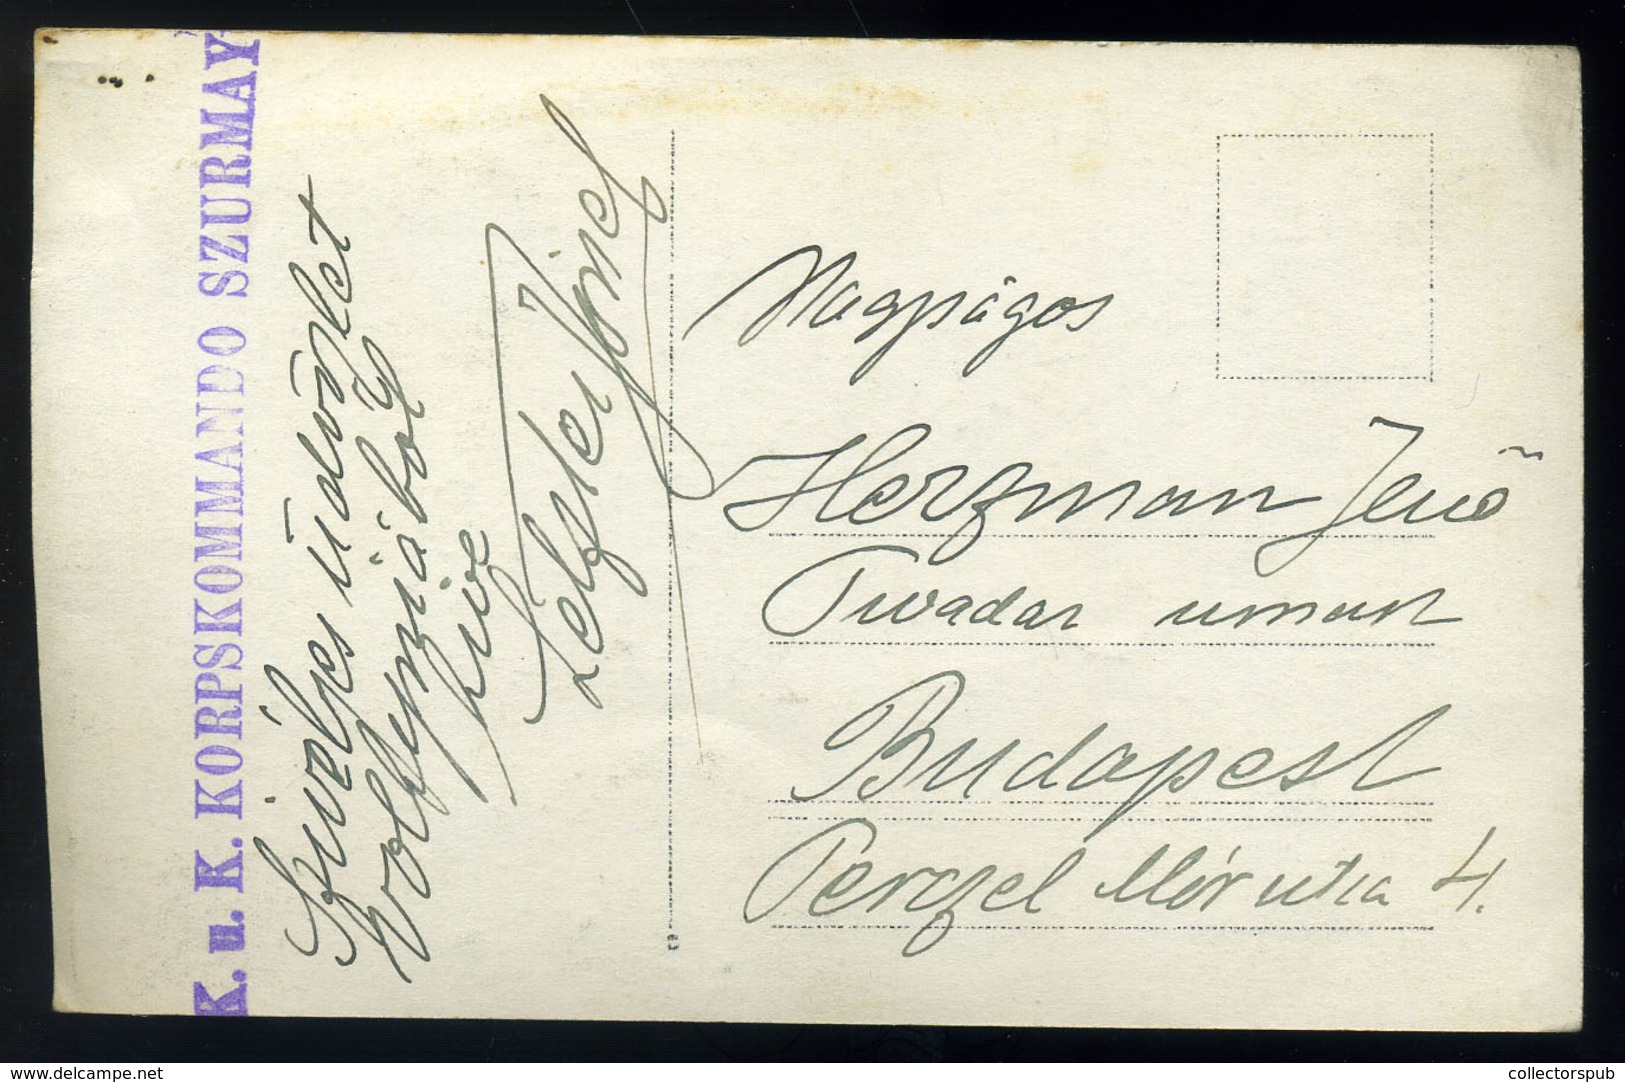 K. u. K. KORPSKOMMANDO SZURMAY
Szivélyes üdvözlet
Wolhyniából
hive
József
Nagyságos
Herzman Jenő
Tivadar urnak
Budapest
Perczel Mór utca 4.
www.delcampe.net
collectorspub